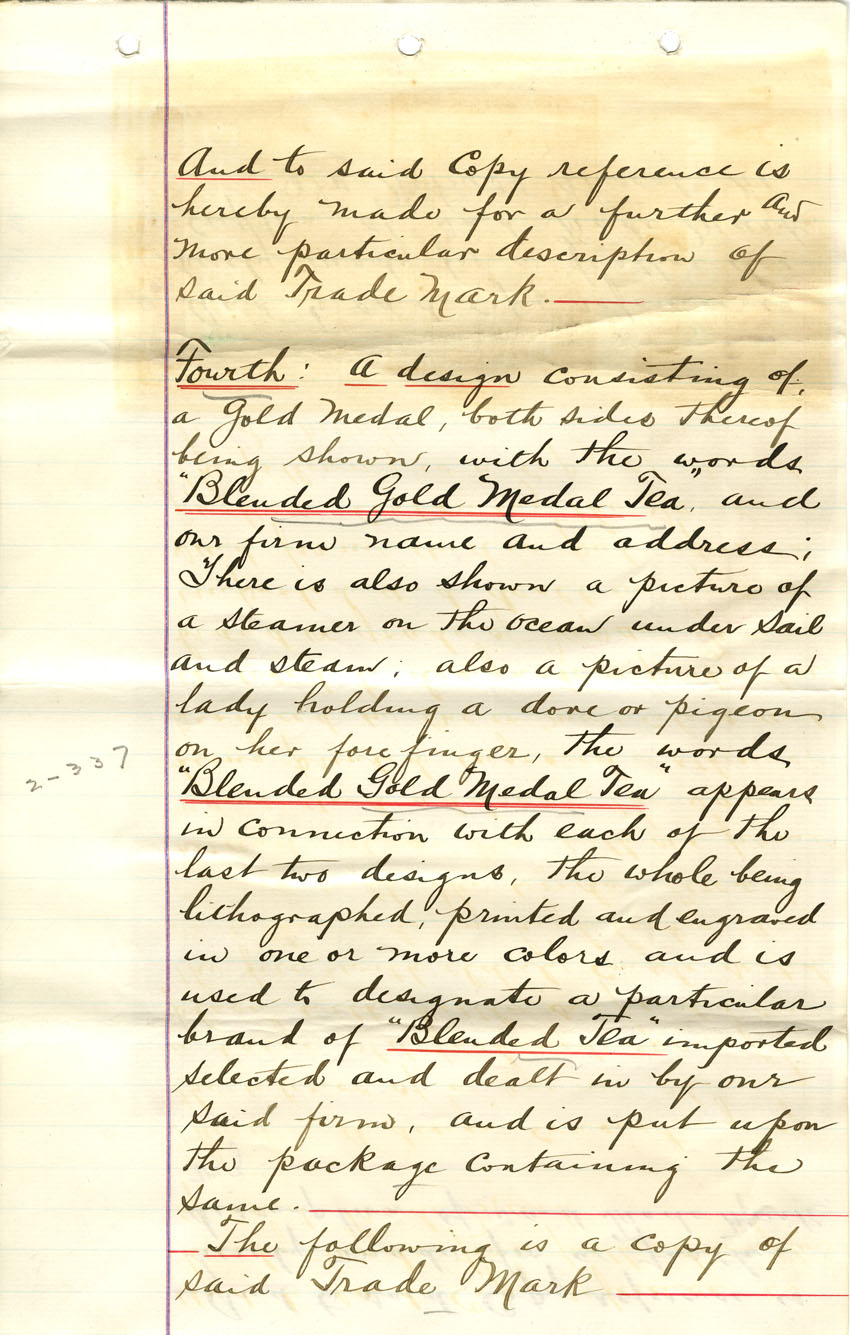 And to said Copy reference is
hereby made for a further and
more particular description of
said Trade Mark.
Fourth: A design consisting of,
a Gold Medal, both sides thereof
being shown, with the words
"Blended Gold Medal Tea", and
our firm name and address;
There is also shown a picture of
a steamer on the ocean under sail
and steam; also a picture of a
lady holding a dove or pigeon
on her fore finger, the words
2-337
"Blended Gold Medal Tea" appears
in connection with each of the
last two designs, the whole being
lithographed, printed and engraved
in one or more colors and is
used to designate a particular
brand of "Blended Tea" imported
selected and dealt in by our
said firm, and is put upon
the package containing the
same.
The following is a copy of
said Trade Mark